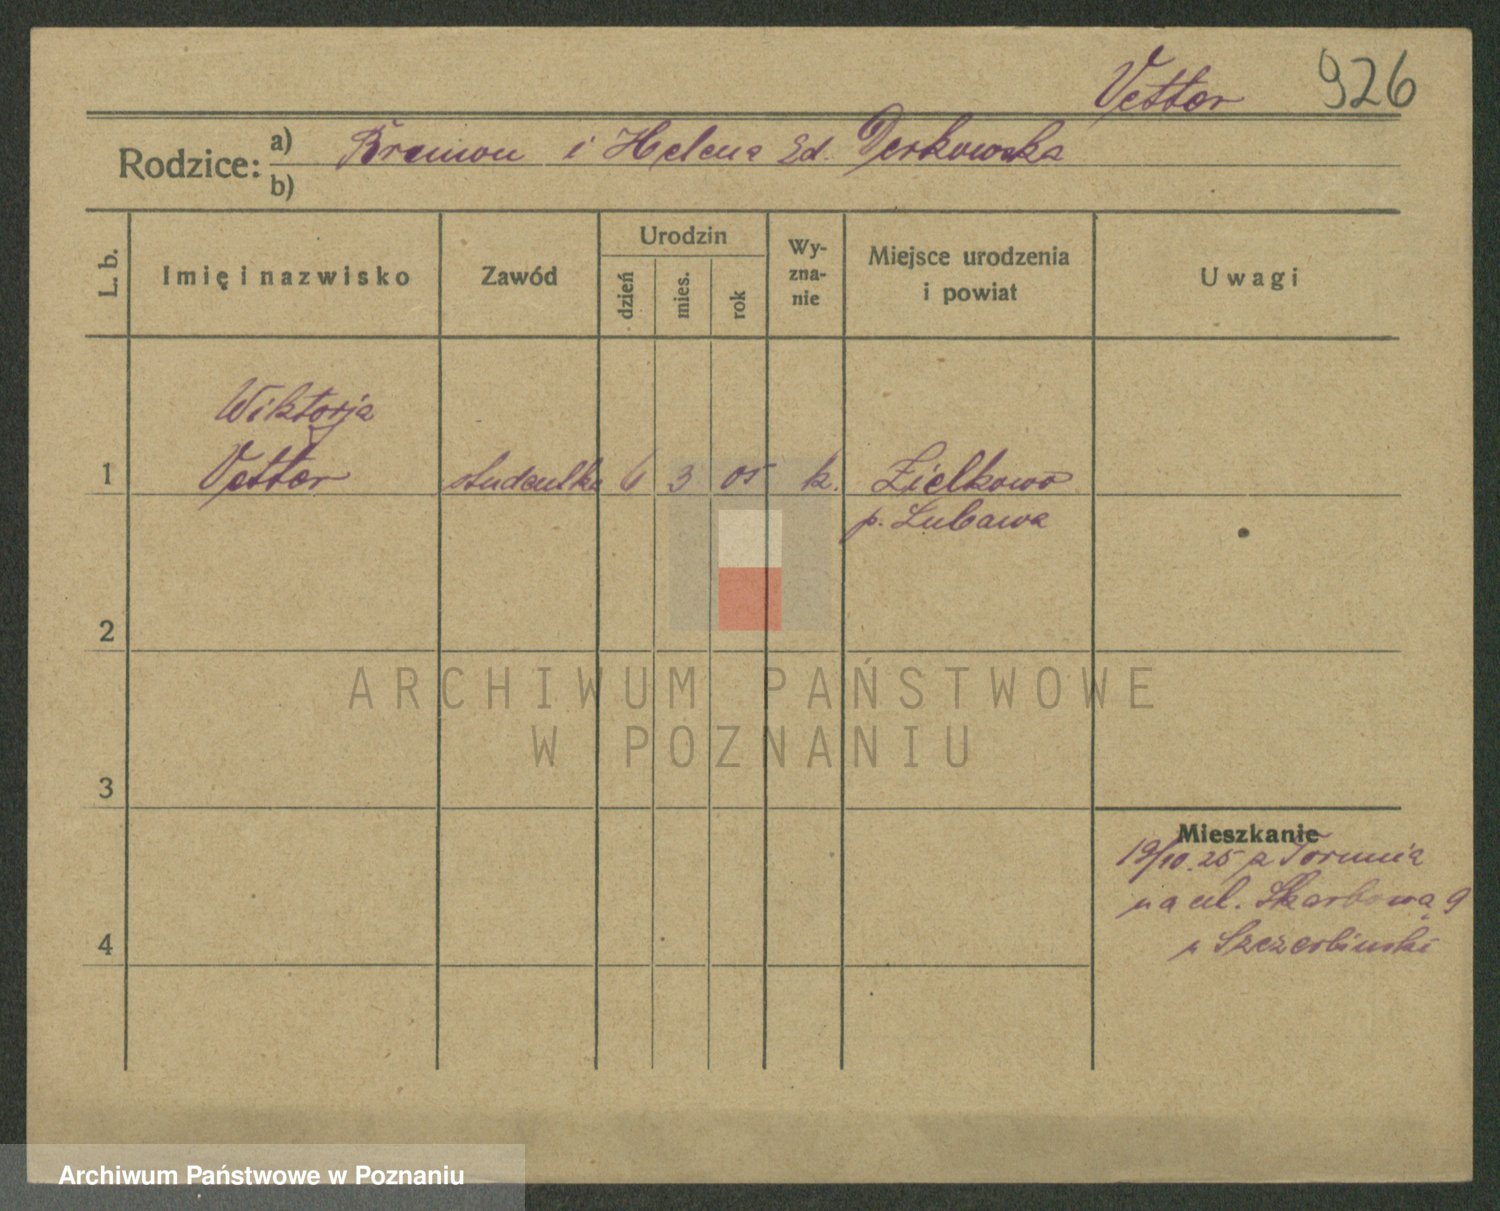 Vetter 926
Rodzice: a) i Helena Derkowska
b)
L. b.
Imię i nazwisko
Zawód
Urodzin
dzień
mies.
rok
Wy-
zna-
nie
Miejsce urodzenia
i powiat
Uwagi
Wiktorja
1 Vetter studentka 6 3 05 k. Zielkowo
p. Lubawa
2
ARCHIWUM PAŃSTWOWE
W POZNANIU
3
Mieszkanie
19/10.25 z Torunia
na ul. Skarbową 9
4
Archiwum Państwowe w Poznaniu